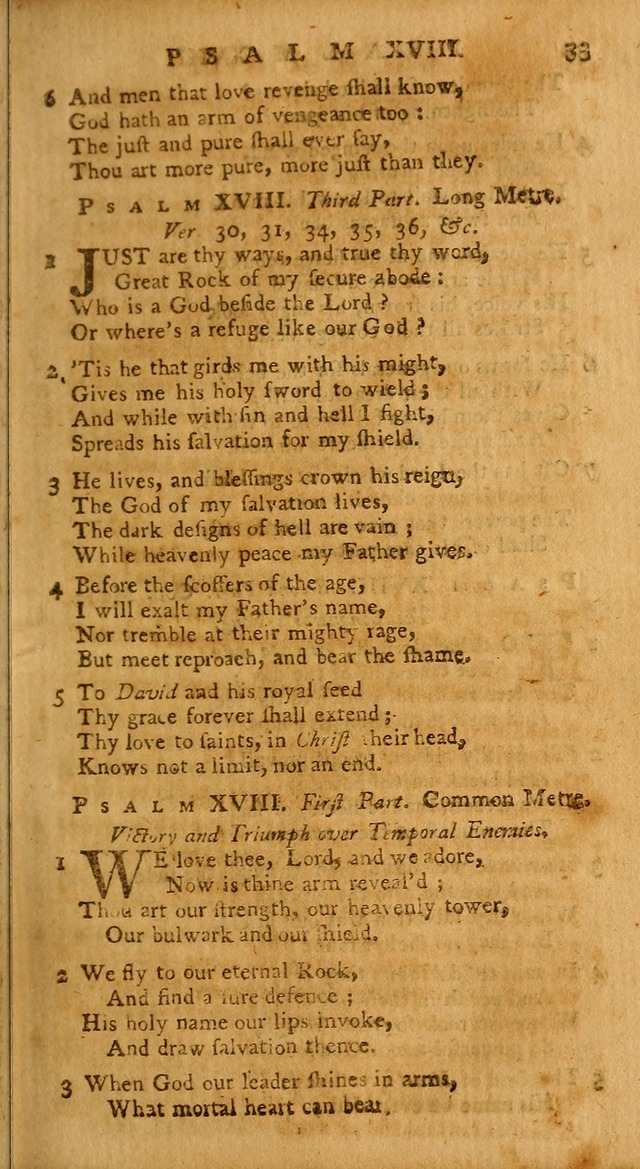 PSALM XVIII. 33
6 And men that love revenge ſhall know,
God hath an arm of vengeance too :
The juſt and pure ſhall ever ſay,
Thou art more pure, more juſt than they.
PSALM XVIII. Third Part. Long Metre.
Ver 30, 31, 34, 35, 36, &c.
1 JUST are thy ways, and true thy word,
Great Rock of my ſecure abode :
Who is a God beſide the Lord ?
Or where's a refuge like our God ?
2 'Tis he that girds me with his might,
Gives me his holy ſword to wield ;
And while with ſin and hell I fight,
Spreads his ſalvation for my ſhield.
3 He lives, and bleſſings crown his reign,
The God of my ſalvation lives,
The dark deſigns of hell are vain ;
While heavenly peace my Father gives.
4 Before the ſcoffers of the age,
I will exalt my Father's name,
Nor tremble at their mighty rage,
But meet reproach, and bear the ſhame.
5 To David and his royal ſeed
Thy grace forever ſhall extend ;
Thy love to ſaints, in Chriſt their head,
Knows not a limit, nor an end.
PSALM XVIII. Firſt Part. Common Metre.
Victory and Triumph over Temporal Enemies.
1 WE love thee, Lord, and we adore,
Now is thine arm reveal'd ;
Thou art our ſtrength, our heavenly tower,
Our bulwark and our ſhield.
2 We fly to our eternal Rock,
And find a ſure defence ;
His holy name our lips invoke,
And draw ſalvation thence.
3 When God our leader ſhines in arms,
What mortal heart can bear